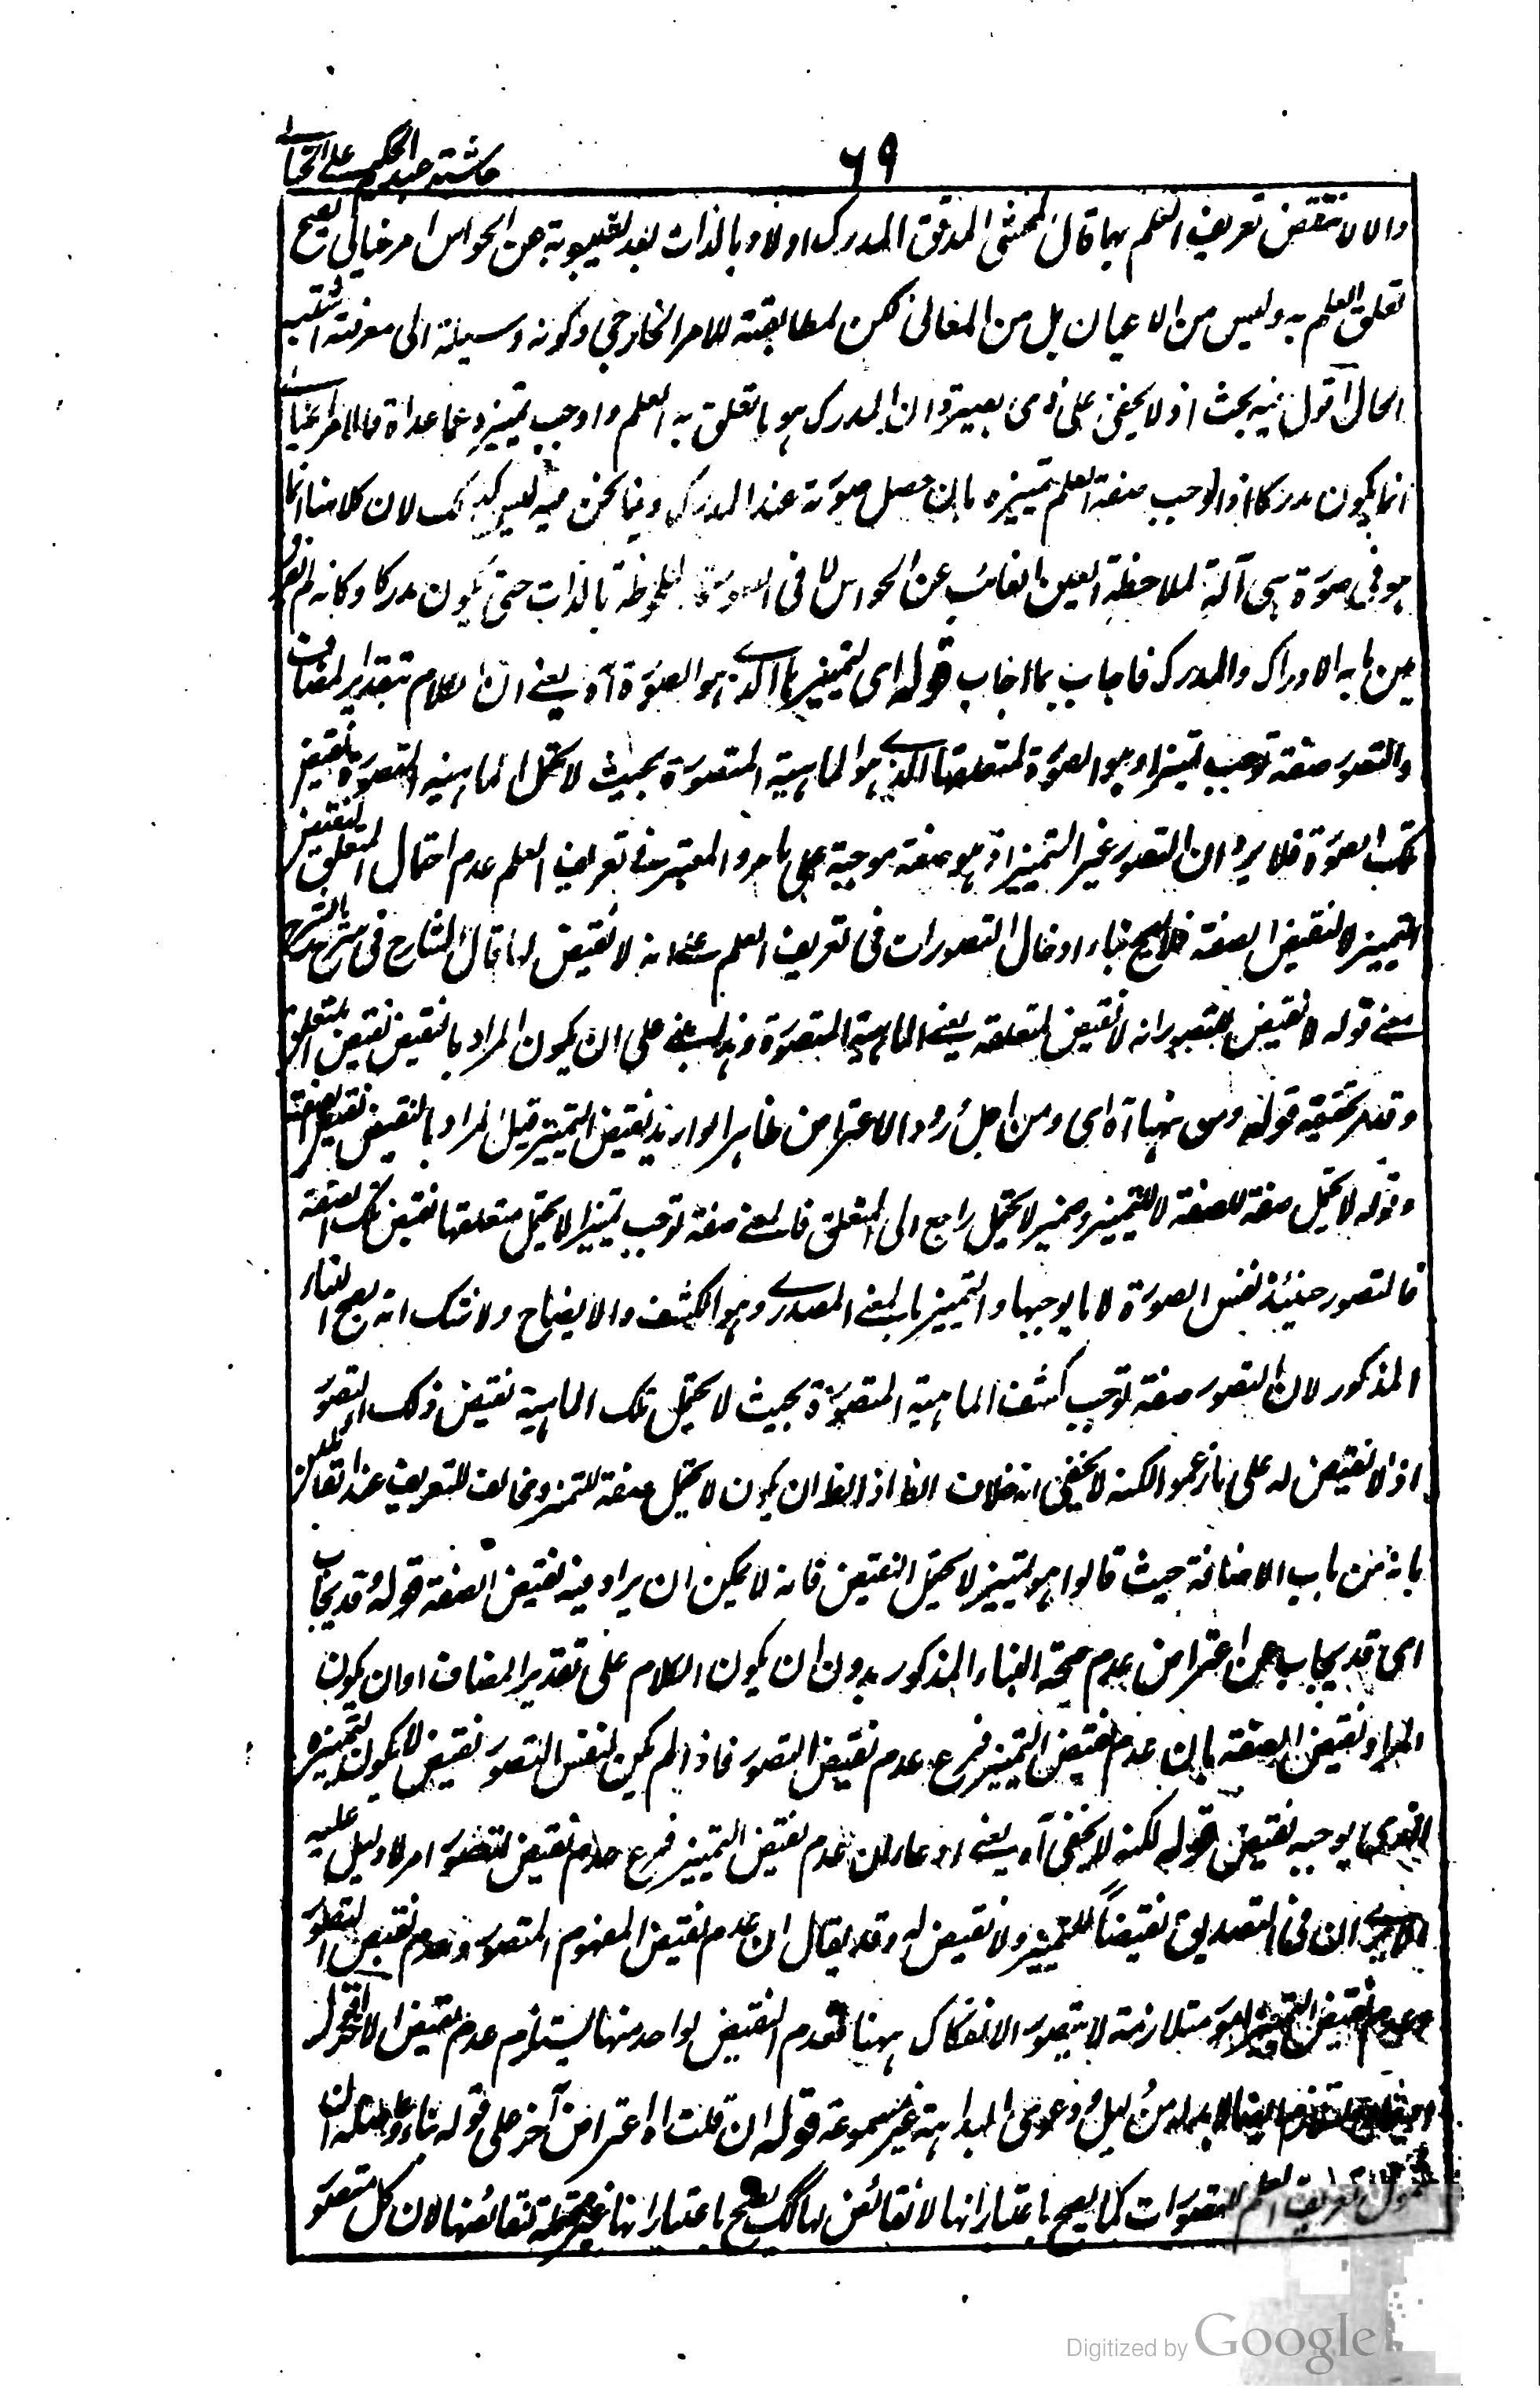 ٦٩
حاشیة عبد الحکیم علی الخیالی
والا لانتقض تعریف العلم بها قال المحشی المدقق المدرک اولا وبالذات بعد الغیبوبة عن الحواس امر خیالی یصح
تعلق العلم به ولیس من الاعیان بل من المعانی لکن لمطابقته للامر الخارجی وکونه وسیلة الی معرفته اشتبه
الحال اقول فیه بحث اذ لا یخفی علی ذی بصیرة ان المدرک هو ما تعلق به العلم واوجب تمییزه عما عداه فالامر الخیالی
انما یکون مدرکا اذا اوجب صفة العلم تمییزه بان حصل صورته عند المدرک وفیما نحن فیه لیس کذلک لان کلامنا انما
هو فی صورة هی آلة لملاحظة العین الغائب عن الحواس لا فی الصورة الملحوظة بالذات حتی یکون مدرکا وکانه لم یفرق
بین ما به الادراک والمدرک فاجاب بما اجاب قوله ای لتمییز بالذی هو الصورة آه یعنی ان الکلام بتقدیر المضاف
والتصور صفة توجب تمییزا وهو الصورة لمتعلقها الذی هو الماهیة المتصورة بحیث لا تحتمل الماهیة المتصورة نقیض
تلک الصورة فلا یرد ان التصور غیر التمییز اذ هو صفة موجبة علی ما مر والمعتبر فی تعریف العلم عدم احتمال المتعلق لنقیض
التمییز لا لنقیض الصفة فلا یصح بناء ادخال التصورات فی تعریف العلم علی انه لا نقیض لها قال الشارح فی شرح الشرح
معنی قوله لا نقیض للتصور انه لا نقیض لمتعلقه یعنی الماهیة المتصورة وهذا مبنی علی ان یکون المراد بالنقیض نقیض المتعلق
وقد مر تحقیقه قوله ومن ههنا آه ای ومن اجل ورود الاعتراض ظاهرا لو ارید نقیض التمییز قیل المراد بالنقیض نقیض الصفة
وقوله لا یحتمل صفة للصفة لا للتمییز وضمیر لا یحتمل راجع الی المتعلق فالمعنی صفة توجب تمییزا لا یحتمل متعلقها نقیض تلک الصفة
فالتصور حینئذ نفس الصورة لا ما یوجبها والتمییز بالمعنی المصدری وهو الکشف والایضاح ولا شک انه یصح البناء
المذکور لان التصور صفة توجب کشف الماهیة المتصورة بحیث لا یحتمل تلک الماهیة نقیض ذلک التصور
اذ لا نقیض له علی ما زعموا لکنه لا یخفی انه خلاف الظ اذ الظ ان یکون لا یحتمل صفة للتمییز ومخالف للتعریف عند القائلین
بانه من باب الاضافة حیث قالوا هو تمییز لا یحتمل النقیض فانه لا یمکن ان یراد فیه نقیض الصفة قوله وقد یجاب
ای قد یجاب عن اعتراض عدم صحة البناء المذکور بدون ان یکون الکلام علی تقدیر المضاف او ان یکون
المراد نقیض الصفة بان عدم نقیض التمییز فرع عدم نقیض التصور فاذا لم یکن لنفس التصور نقیض لا یکون لتمییزه
الذی یوجبه نقیض قوله لکنه لا یخفی آه یعنی ادعاء ان عدم نقیض التمییز فرع عدم نقیض للتصور امر لا دلیل علیه
الا یری ان فی التصدیق نقیضاً للتمییز ولا نقیض له وقد یقال ان عدم نقیض المفهوم المتصور وعدم نقیض التصور
وعدم نقیض التمییز امور متلازمة لا یتصور الانفکاک ههنا فعدم النقیض لواحد منها یستلزم عدم نقیض الآخر اقول
لا بد له من دلیل ودعوی البداهة غیر مسموعة قوله ان قلت اه اعتراض آخر علی قوله بناء علی انه ان
شمول تعریف العلم للتصورات کما یصح باعتبار انها لا نقائض لها کذلک یصح باعتبار انها غیر محتملة لنقائضها لان کل متصور
Digitized by Google